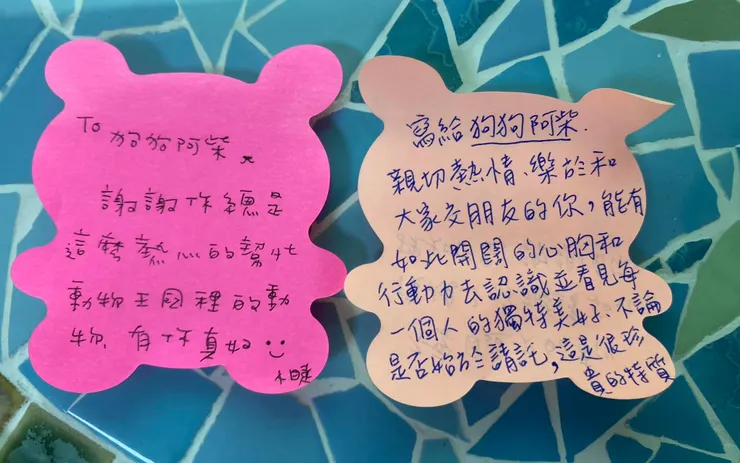 To 狗狗阿柴
謝謝你總是
這麼熱心的幫忙
動物王國裡的動
物,有你真好
寫給狗狗阿柴.
親切熱情、樂於和
大家交朋友的你,能有
如此開闊的心胸和
行動力去認識並看見每
一個人的獨特美好.不論
是否始於請託,這是很珍
貴的特質